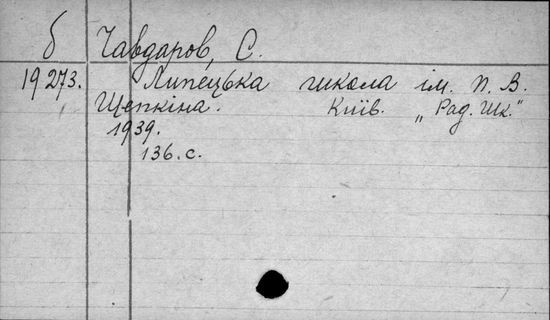 б Чавдаров, С.
19273. Липецька школа ім. П. В.
Щепкіна. Київ. „Рад. шк."
1939.
136. с.